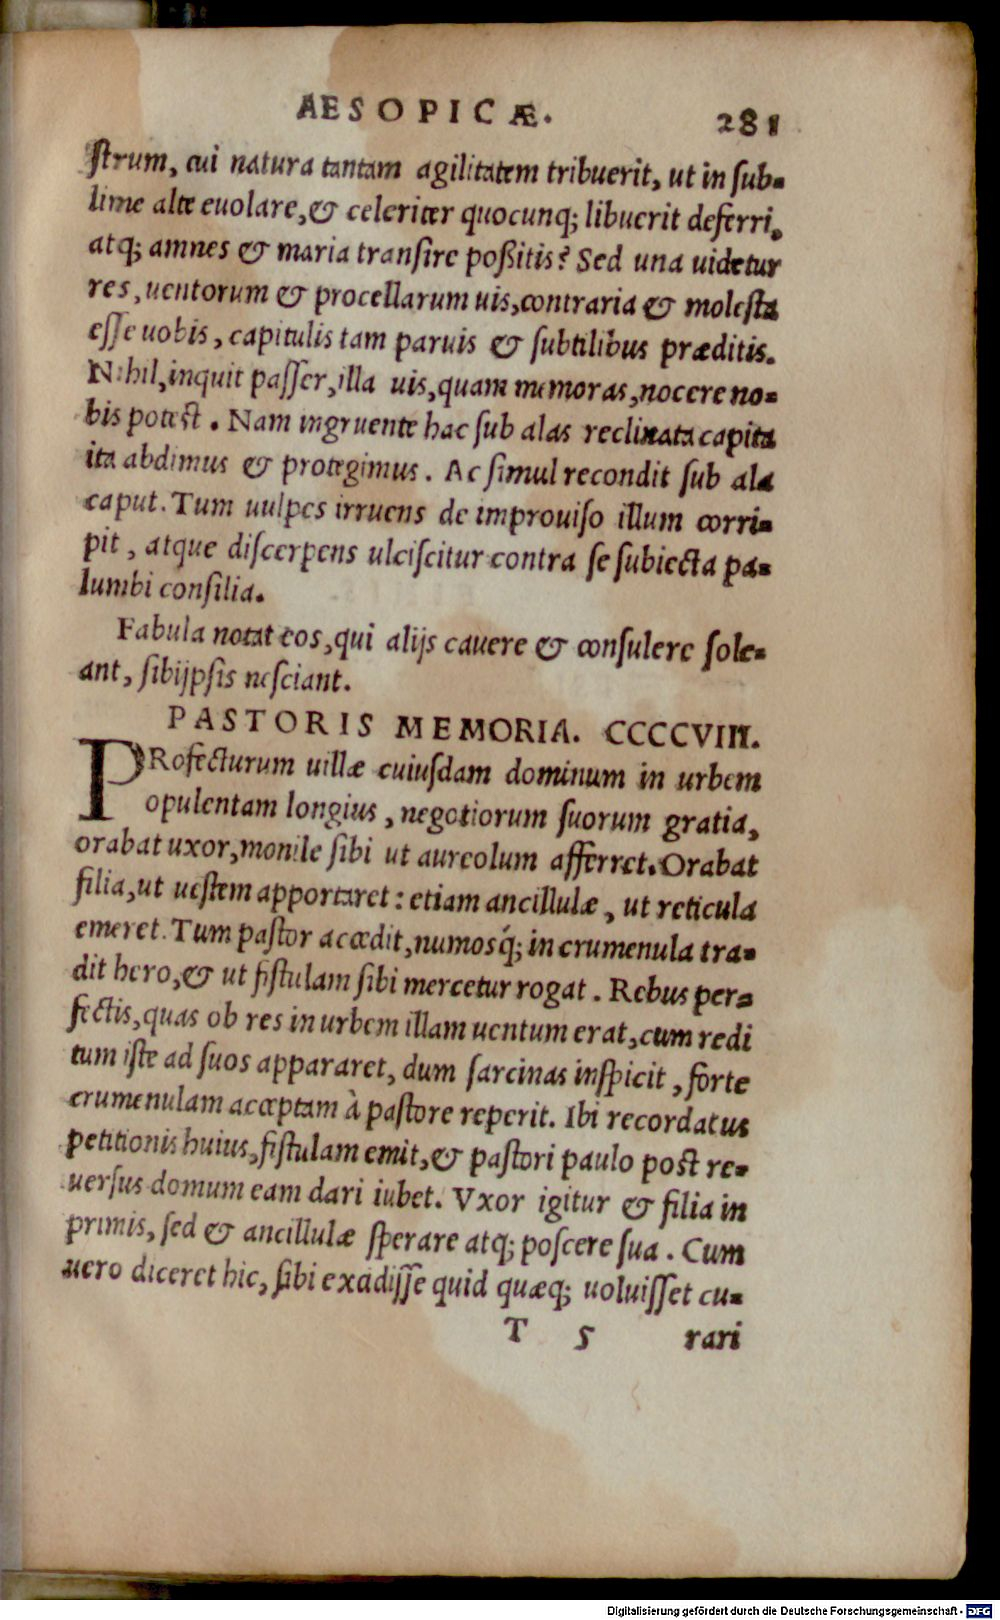 AESOPICÆ. 281
ſtrum, cui natura tantam agilitatem tribuerit, ut in ſub-
lime alte euolare, & celeriter quocunq; libuerit deferri,
atq; amnes & maria tranſire poßitis? Sed una uidetur
res, uentorum & procellarum uis, contraria & moleſta
eſſe uobis, capitulis tam paruis & ſubtilibus præditis.
Nihil, inquit paſſer, illa uis, quam memoras, nocere no-
bis poteſt. Nam ingruente hac ſub alas reclinata capita
ita abdimus & protegimus. Ac ſimul recondit ſub ala
caput. Tum uulpes irruens de improuiſo illum corri-
pit, atque diſcerpens ulciſcitur contra ſe ſubiecta pa-
lumbi conſilia.
Fabula notat eos, qui alijs cauere & conſulere ſole-
ant, ſibijpſis neſciant.
PASTORIS MEMORIA. CCCCVIII.
PRofecturum uillæ cuiuſdam dominum in urbem
opulentam longius, negotiorum ſuorum gratia,
orabat uxor, monile ſibi ut aureolum afferret. Orabat
filia, ut ueſtem apportaret: etiam ancillulæ, ut reticula
emeret. Tum paſtor accedit, numosq́; in crumenula tra-
dit hero, & ut fiſtulam ſibi mercetur rogat. Rebus per-
fectis, quas ob res in urbem illam uentum erat, cum redi
tum iſte ad ſuos appararet, dum ſarcinas inſpicit, forte
crumenulam acceptam à paſtore reperit. Ibi recordatus
petitionis huius, fiſtulam emit, & paſtori paulo poſt re-
uerſus domum eam dari iubet. Vxor igitur & filia in
primis, ſed & ancillulæ ſperare atq; poſcere ſua. Cum
uero diceret hic, ſibi excidiſſe quid quæq; uoluiſſet cu-
T 5 rari
Digitalisierung gefördert durch die Deutsche Forschungsgemeinschaft - DFG